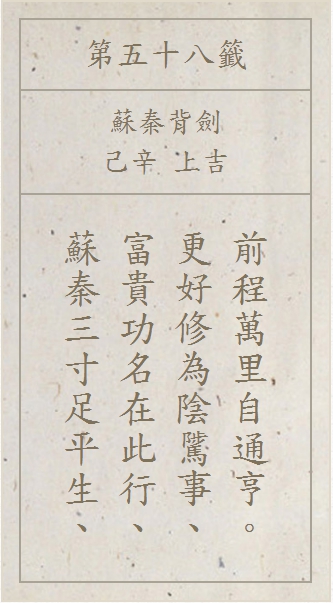 第五十八籤
蘇秦背劍
己辛 上吉
蘇秦三寸足平生、
富貴功名在此行、
更好修為陰騭事、
前程萬里自通亨。